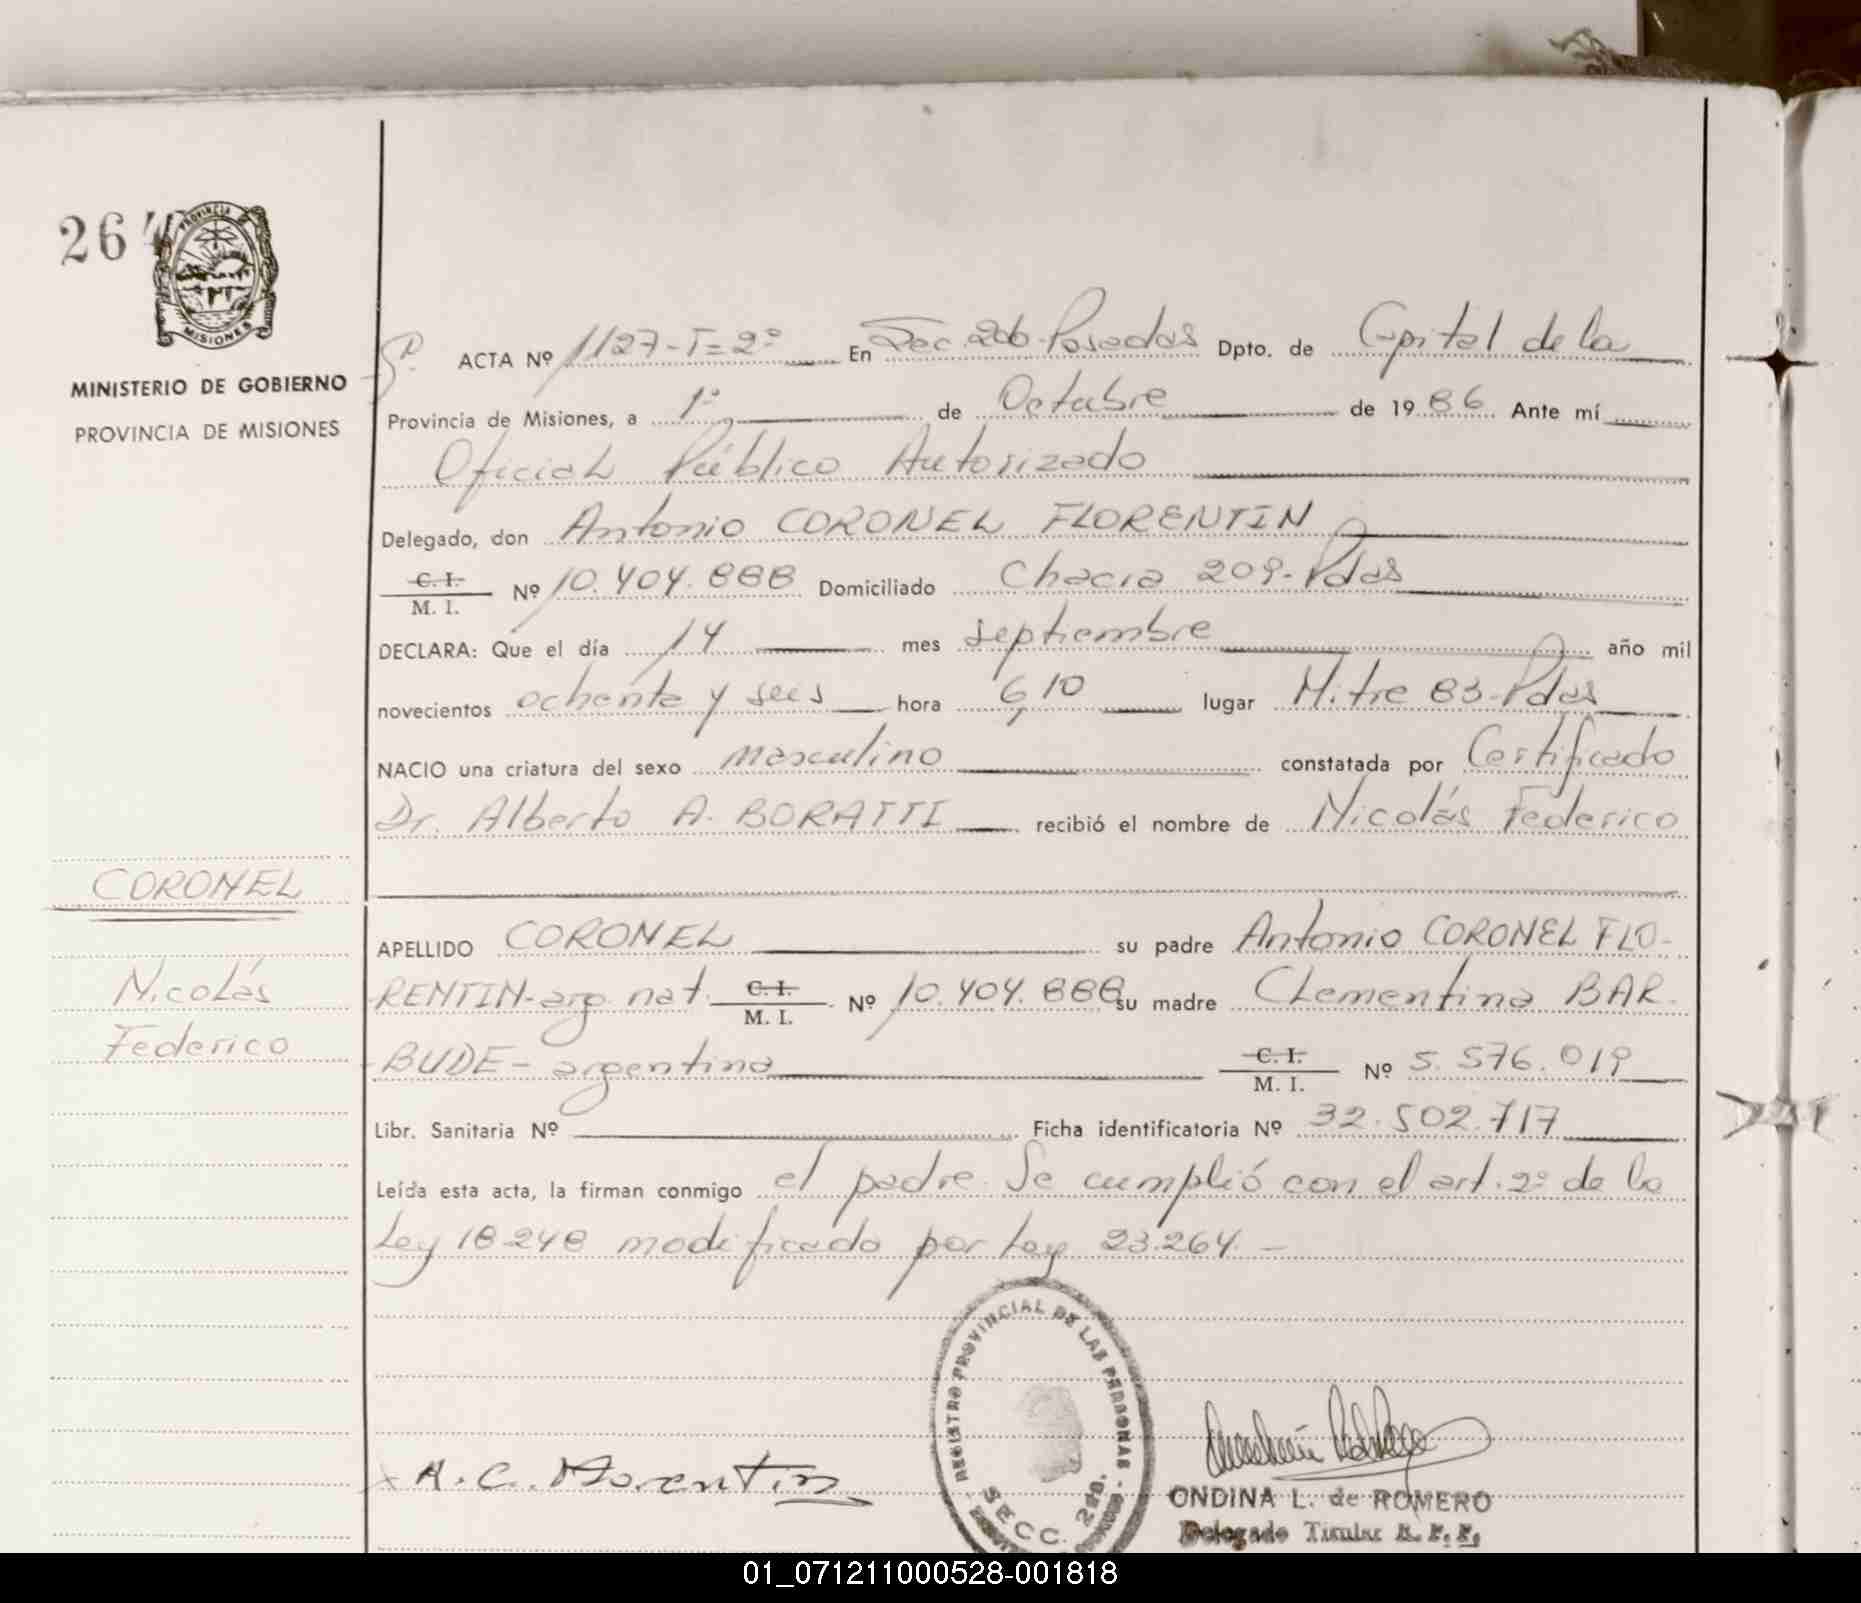 264
PROVINCIA
MISIONES
MINISTERIO DE GOBIERNO
PROVINCIA DE MISIONES
ACTA Nº 1127-T=2º En Sec. 2da Posadas Dpto. de Capital de la
Provincia de Misiones, a 1º de Octubre de 1986 Ante mí
Oficial Público Autorizado
Delegado, don Antonio CORONEL FLORENTIN
C. I.
M. I. Nº 10.404.888 Domiciliado Chacra 209-Pdas
DECLARA: Que el día 14 mes septiembre año mil
novecientos ochenta y seis hora 6,10 lugar Mitre 83-Pdas
NACIO una criatura del sexo masculino constatada por Certificado
Dr. Alberto A. BORATTI recibió el nombre de Nicolás Federico
CORONEL
Nicolás
Federico
APELLIDO CORONEL su padre Antonio CORONEL FLO-
RENTIN-arg. nat. C. I. M. I. Nº 10.404.888 su madre Clementina BAR-
BUDE - argentina C. I. M. I. Nº 5.576.019
Libr. Sanitaria Nº Ficha identificatoria Nº 32.502.717
Leída esta acta, la firman conmigo el padre. Se cumplió con el art. 2º de la
Ley 18248 modificado por Ley 23.264.-
REGISTRO PROVINCIAL DE LAS PERSONAS
SECC. 2da.
A. C. Florentin
ONDINA L. de ROMERO
Delegado Titular R. P. P.
01_071211000528-001818